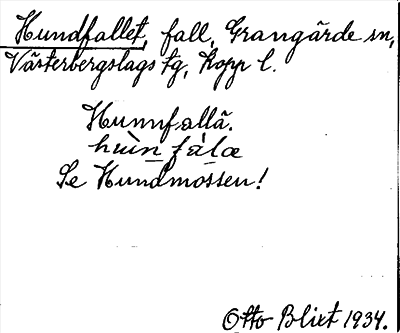 Hundfallet, fall, Grangärde sn,
Västerbergslags tg, Kopp l.
Hunnfallä.
hùn fàlæ
Se Hundmossen!
Otto Blixt 1934.